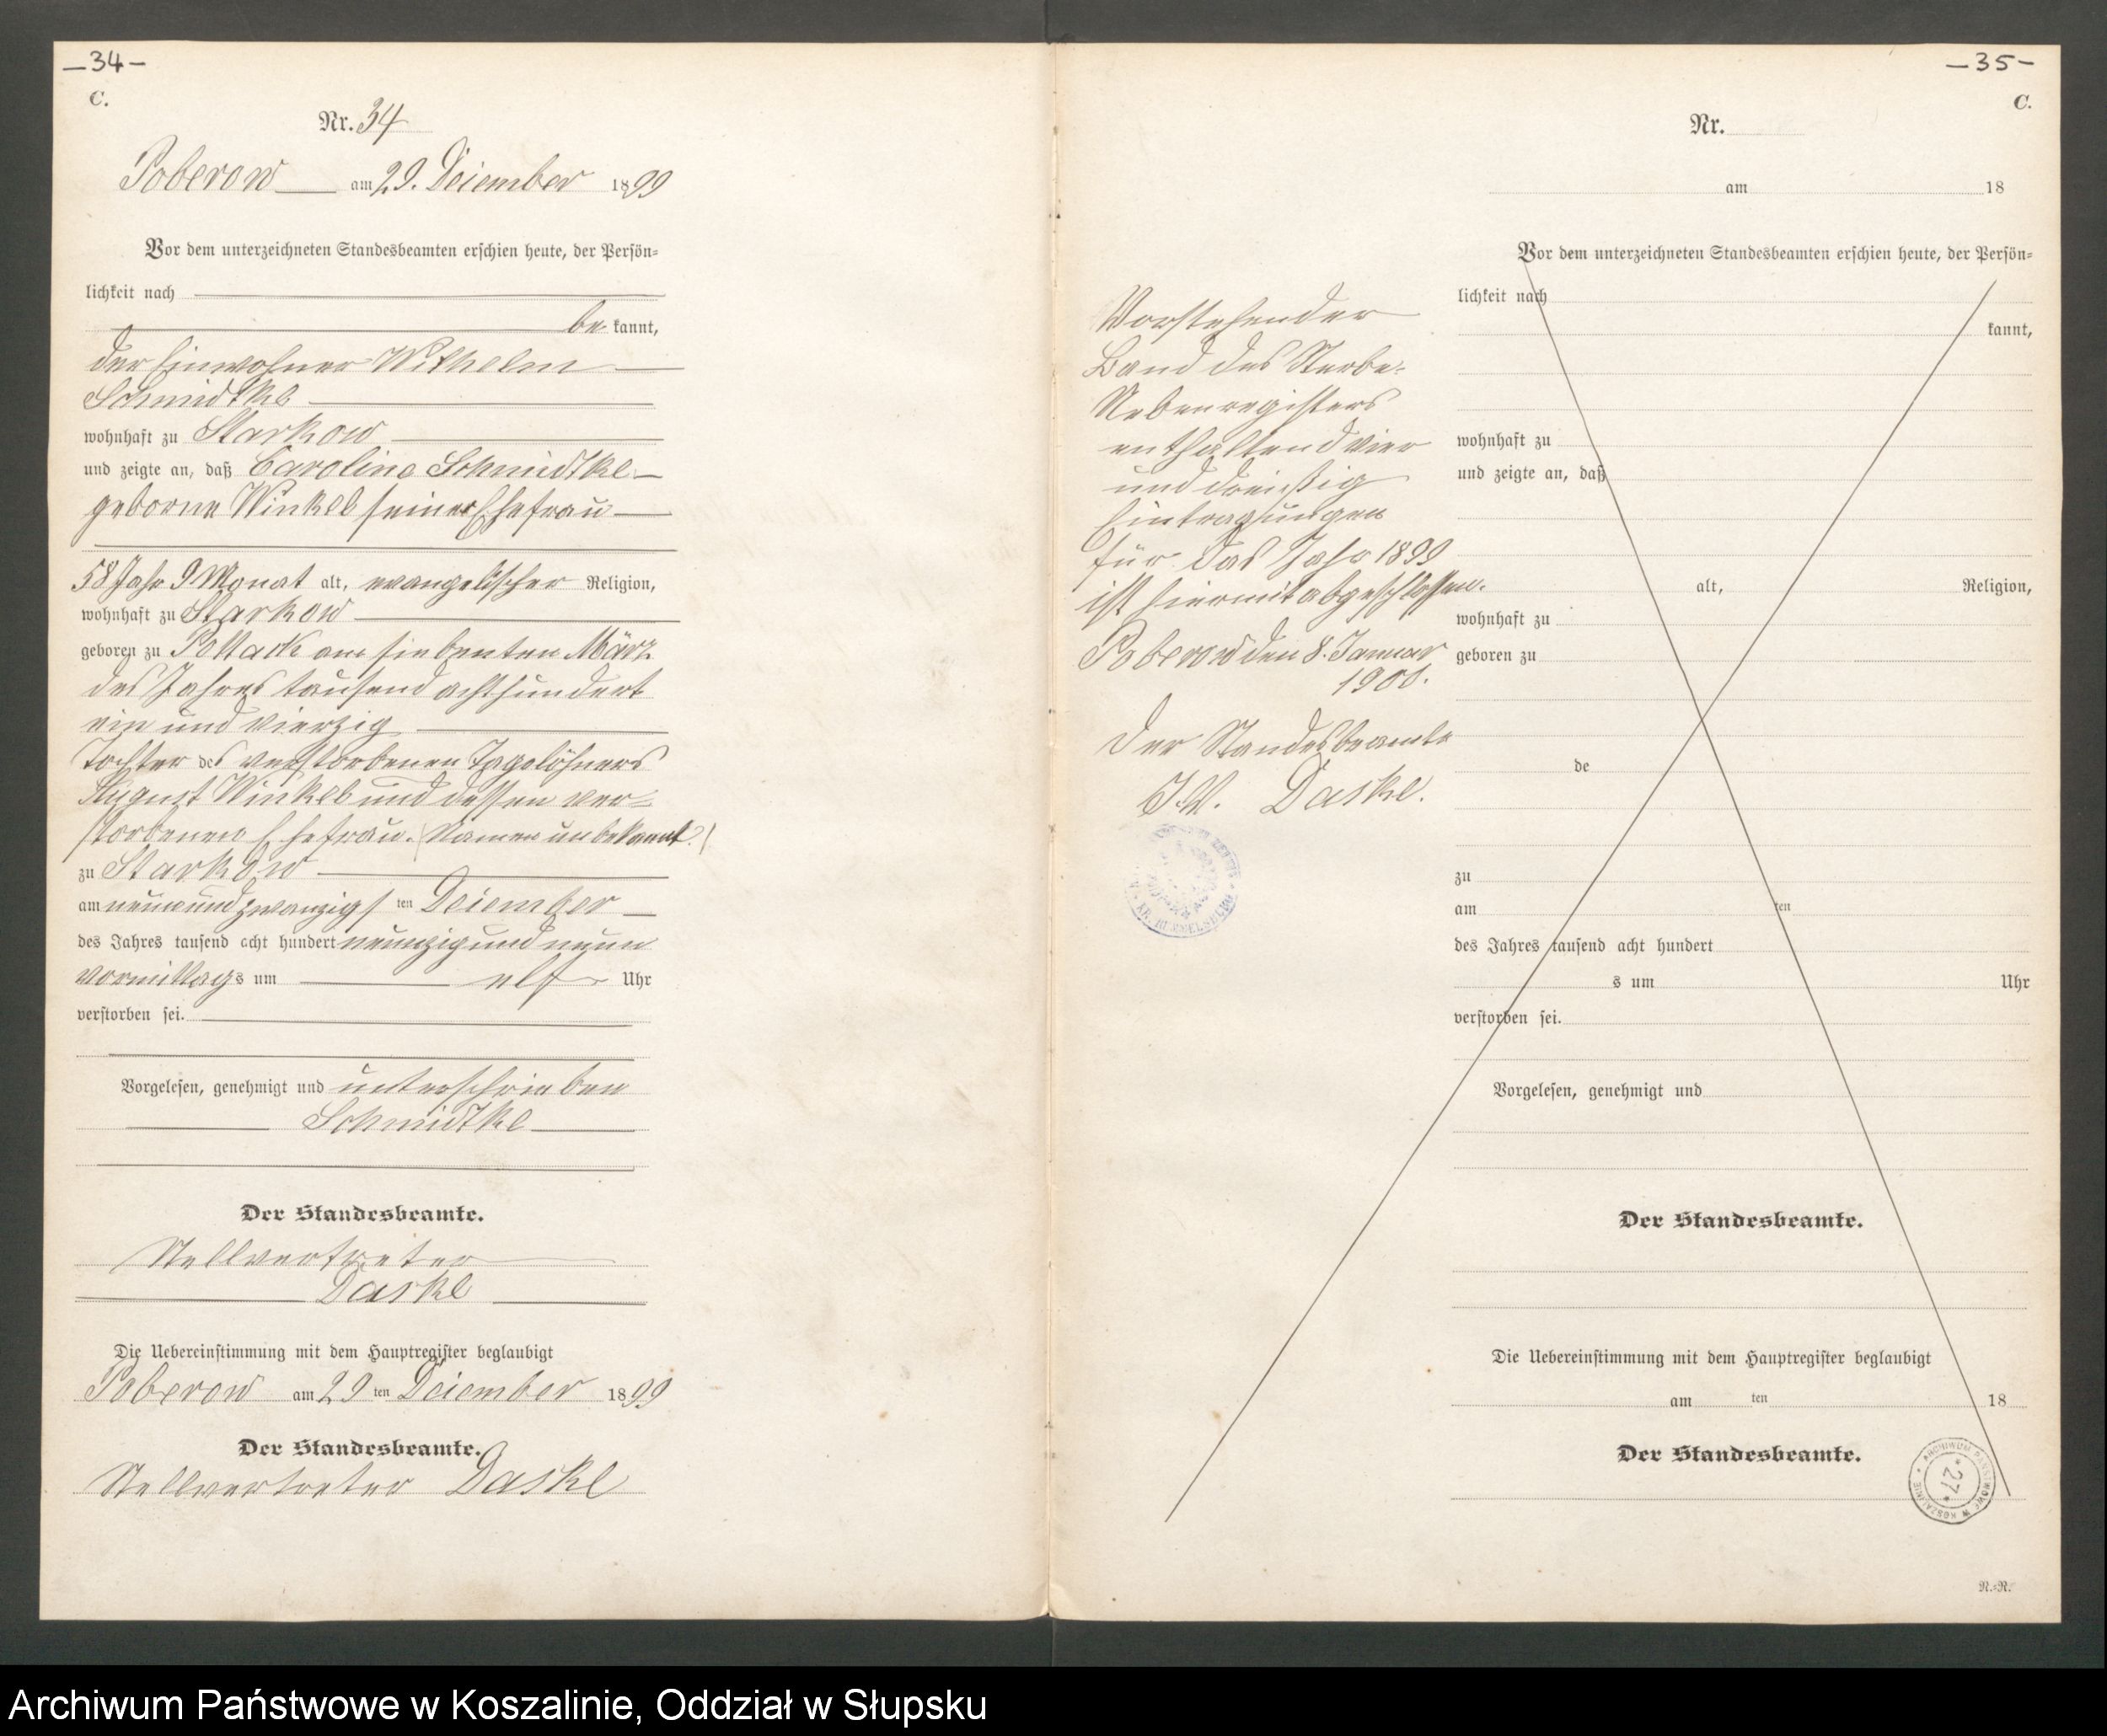 —34—
C.
Nr. 34
Poberow am 29. Dezember 1899
Vor dem unterzeichneten Standesbeamten erschien heute, der Persön-
lichkeit nach
be kannt,
der Einwohner Wilhelm
Schmidtke
wohnhaft zu Starkow
und zeigte an, daß Caroline Schmidtke
geborne Winkel seiner Ehefrau
58 Jahr 9 Monat alt, evangelischer Religion,
wohnhaft zu Starkow
geboren zu am siebenten März
des Jahres tausend achthundert
ein und vierzig
Tochter des verstorbenen Tagelöhners
August Winkel und dessen ver-
storbenen Ehefrau. (Namen unbekannt.)
zu Starkow
am neunundzwanzigs ten Dezember
des Jahres tausend acht hundert neunzig und neun
vormittags um elf Uhr
verstorben sei.
Vorgelesen, genehmigt und unterschrieben
Schmidtke
Der Standesbeamte.
Stellvertreter
Daske
Die Uebereinstimmung mit dem Hauptregister beglaubigt
Poberow am 29 ten Dezember 1899
Der Standesbeamte.
Stellvertreter Daske
—35—
C.
Nr.
am 18
Vor dem unterzeichneten Standesbeamten erschien heute, der Persön-
lichkeit nach
kannt,
wohnhaft zu
und zeigte an, daß
alt, Religion,
wohnhaft zu
geboren zu
de
zu
am ten
des Jahres tausend acht hundert
s um Uhr
verstorben sei.
Vorgelesen, genehmigt und
Der Standesbeamte.
Die Uebereinstimmung mit dem Hauptregister beglaubigt
am ten 18
Der Standesbeamte.
Vorstehender
Band des Sterbe-
Nebenregisters
enthaltend vier
und dreißig
Eintragungen
für das Jahr 1899
ist hiermit abgeschlossen.
Poberow den 8. Januar
1900.
Der Standesbeamte
I.V. Daske.
KR. RUMMELSBURG
ARCHIWUM PAŃSTWOWE W KOSZALINIE
*27*
N.-R.
Archiwum Państwowe w Koszalinie, Oddział w Słupsku